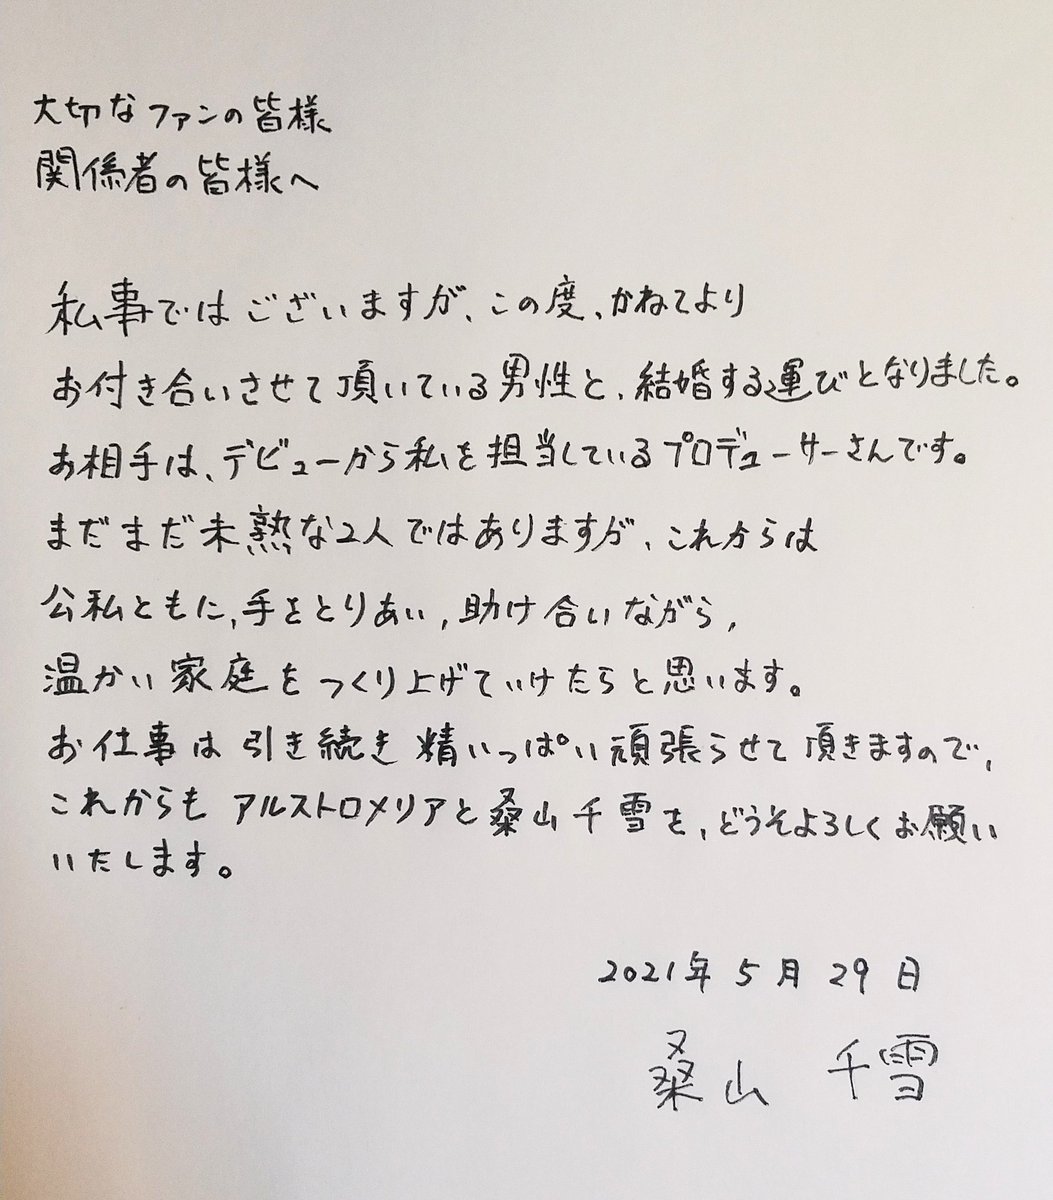 大切なファンの皆様
関係者の皆様へ
私事ではございますが、この度、かねてより
お付き合いさせて頂いている男性と、結婚する運びとなりました。
お相手は、デビューから私を担当しているプロデューサーさんです。
まだまだ未熟な2人ではありますが、これからは
公私ともに、手をとりあい、助け合いながら、
温かい家庭をつくり上げていけたらと思います。
お仕事は引き続き精いっぱい頑張らせて頂きますので、
これからもアルストロメリアと桑山千雪を、どうぞよろしくお願い
いたします。
2021年5月29日
桑山 千雪